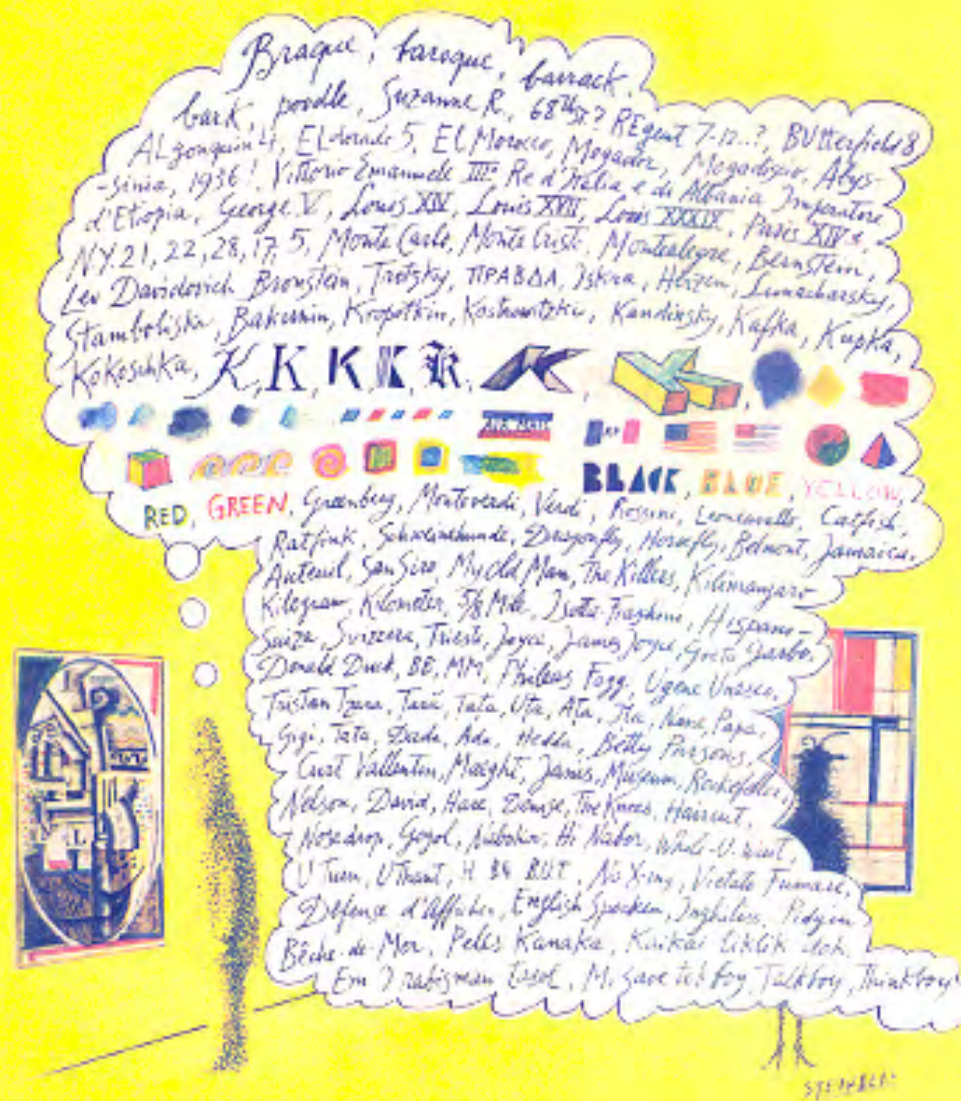 Braque, baroque, barrack,
bark, poodle, Suzanne R., 68th St? REgent 7-12..?, BUtterfield 8
ALgonquin 4, ELdorado 5, EL Morocco, Mogador, Mogadiscio, Abys-
-sinia, 1936!, Vittorio Emanuele III° Re d'Italia e di Albania Imperatore
d'Etiopia, George V, Louis XIV, Louis XVII, Louis XXXIX, Paris XIVe
N.Y. 21, 22, 28, 17, 5, Monte Carlo, Monte Cristi, Montealegre, Bernstein,
Lev Davidovich Bronstein, Trotzky, ПРАВДА, Iskra, Herzen, Lunacharsky,
Stamboliska, Bakunin, Kropotkin, Kostrowitzki, Kandinsky, Kafka, Kupka,
Kokoschka, K, K, K, K, K, K, K,
AIR MAIL
BLACK, BLUE, YELLOW,
RED, GREEN, Greenberg, Monteverdi, Verdi, Rossini, Leoncavallo, Catfish,
Ratfink, Schweinehunde, Dragonfly, Horsefly, Belmont, Jamaica,
Auteuil, San Siro, My Old Man, The Killers, Kilimanjaro
Kilogram, Kilometer, 5/8 Mile, Isotta-Fraschini, Hispano-
Suiza, Svizzera, Trieste, Joyce, James Joyce, Greta Garbo,
Donald Duck, BB, MM, Phileas Fogg, Ugene Unesco,
Tristan Tzara, Tara, Tata, Uta, Ata, Ita, Nana, Papa,
Gigi, Tata, Dada, Ada, Hedda, Betty Parsons,
Curt Valentin, Maeght, Janis, Museum, Rockefeller,
Nelson, David, Hare, Denise, The Knees, Haircut,
Nosedrop, Gogol, Nabokov, Hi Nabor, What-U-want,
U Turn, U Thant, BUT, No X-ing, Vietato Fumare,
Défense d'Afficher, English Spoken, Inghilese, Pidgin
Bêche-de-Mer, Peles Kanaka, Kaikai liklik dok.
Em I rabisman, Talkboy, Thinkboy
STEINBERG